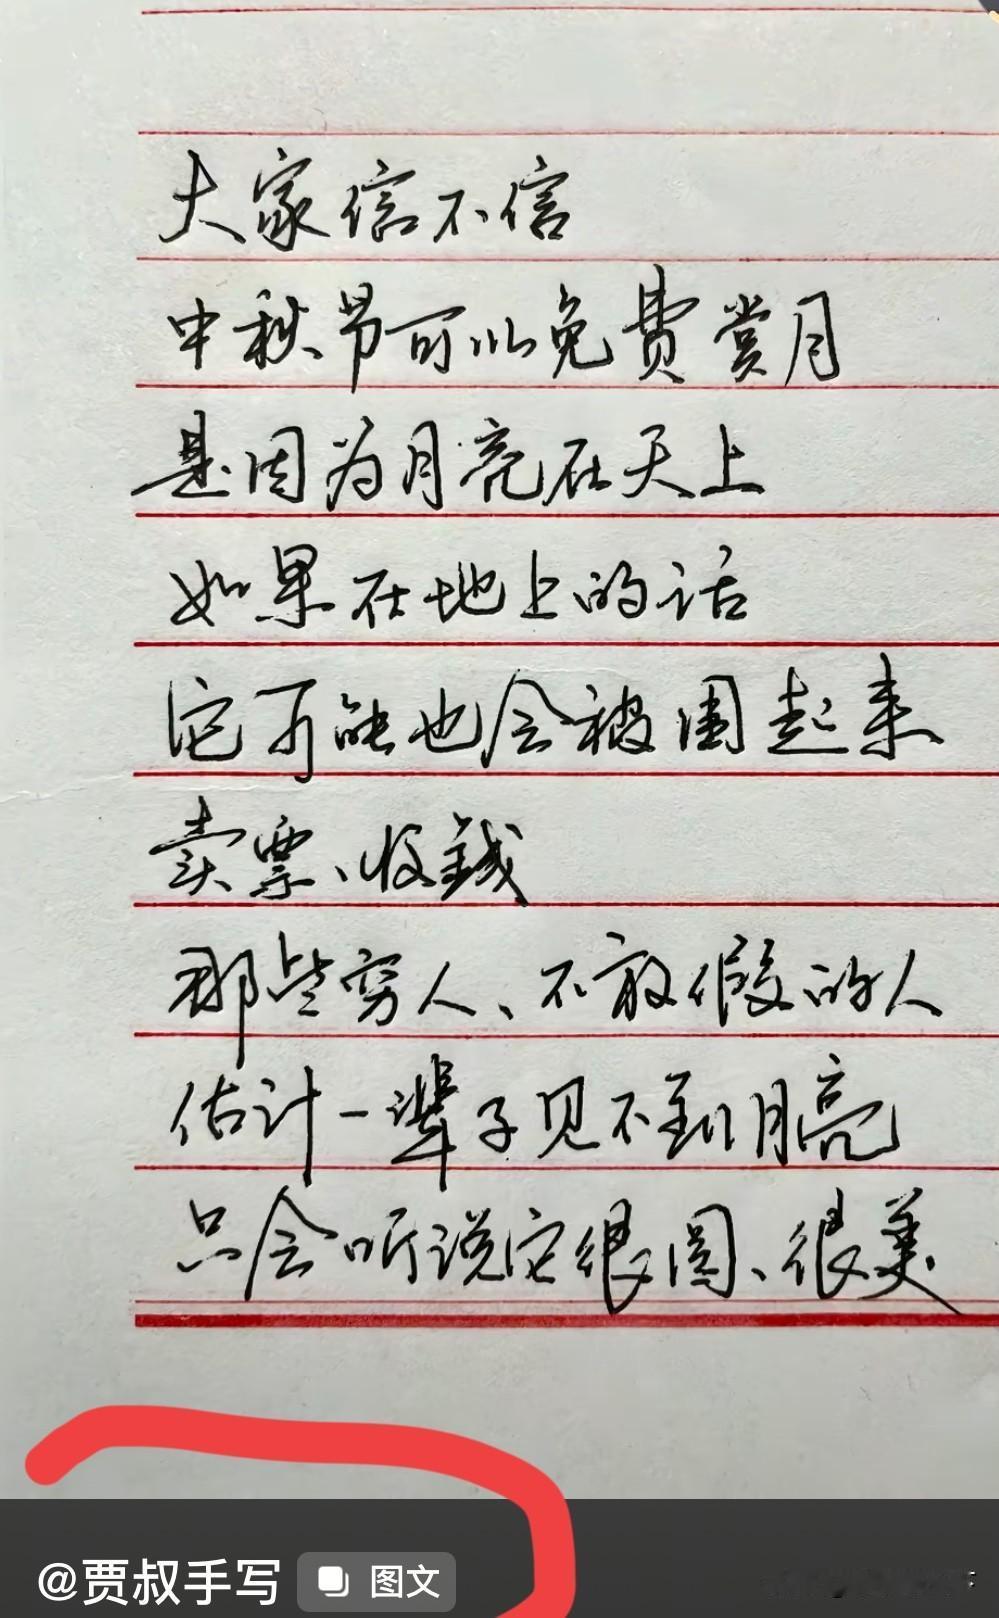 大家信不信
中秋节可以免费赏月
是因为月亮在天上
如果在地上的话
它可能也会被围起来
卖票、收錢
那些穷人、不放假的人
估计一辈子见不到月亮
只会听说它很圆、很美
@贾叔手写 图文